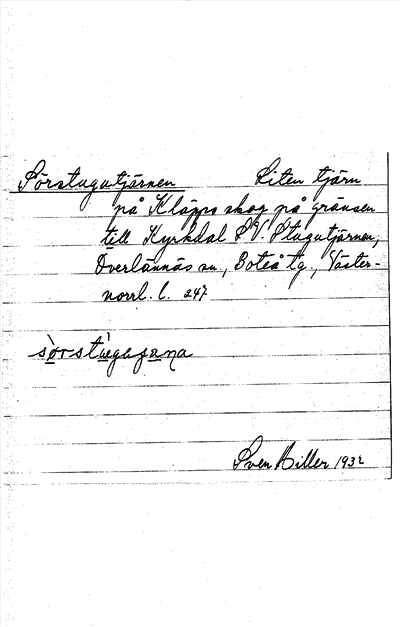 Sörstugutjärnen Liten tjärn
på Kläpps skog på gränsen
till Kyrkdal S V. Stugutjärnen,
Överlännäs sn., Boteå tg., Väster-
norrl. l. 247
Sven Biller 1932